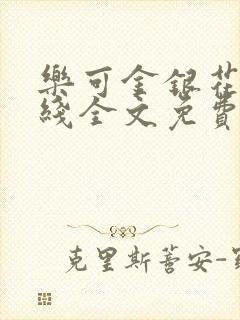 樂可金銀花
綫全文免費
克里斯蒂安-羅